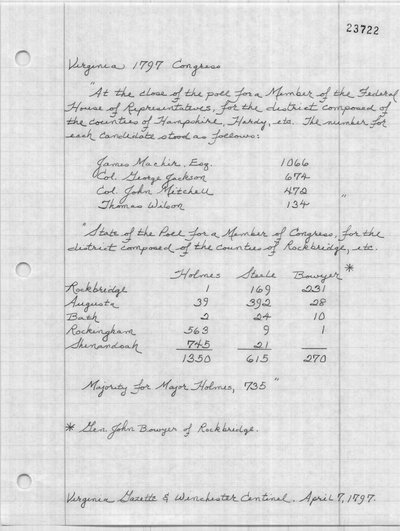 23722
Virginia 1797 Congress
"At the close of the poll for a Member of the Federal
House of Representatives, for the district composed of
the counties of Hampshire, Hardy, etc. The number for
each candidate stood as follows:
James Machir, Esq. 1066
Col. George Jackson 674
Col. John Mitchell 472
Thomas Wilson 134 "
"State of the Poll for a Member of Congress, for the
district composed of the counties of Rockbridge, etc.
Holmes Steele Bowyer *
Rockbridge 1 169 231
Augusta 39 392 28
Bath 2 24 10
Rockingham 563 9 1
Shenandoah 745 21 —
1350 615 270
Majority for Major Holmes, 735 "
* Gen. John Bowyer of Rockbridge.
Virginia Gazette & Winchester Centinel. April 7, 1797.